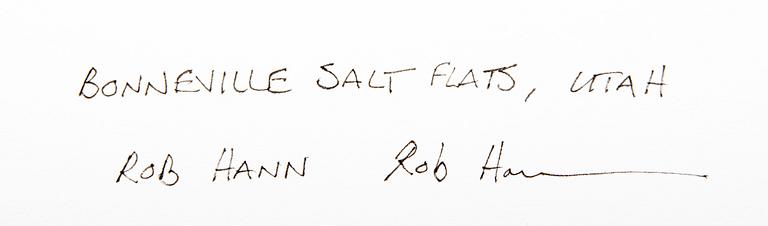 BONNEVILLE SALT FLATS, UTAH
ROB HANN Rob Hann